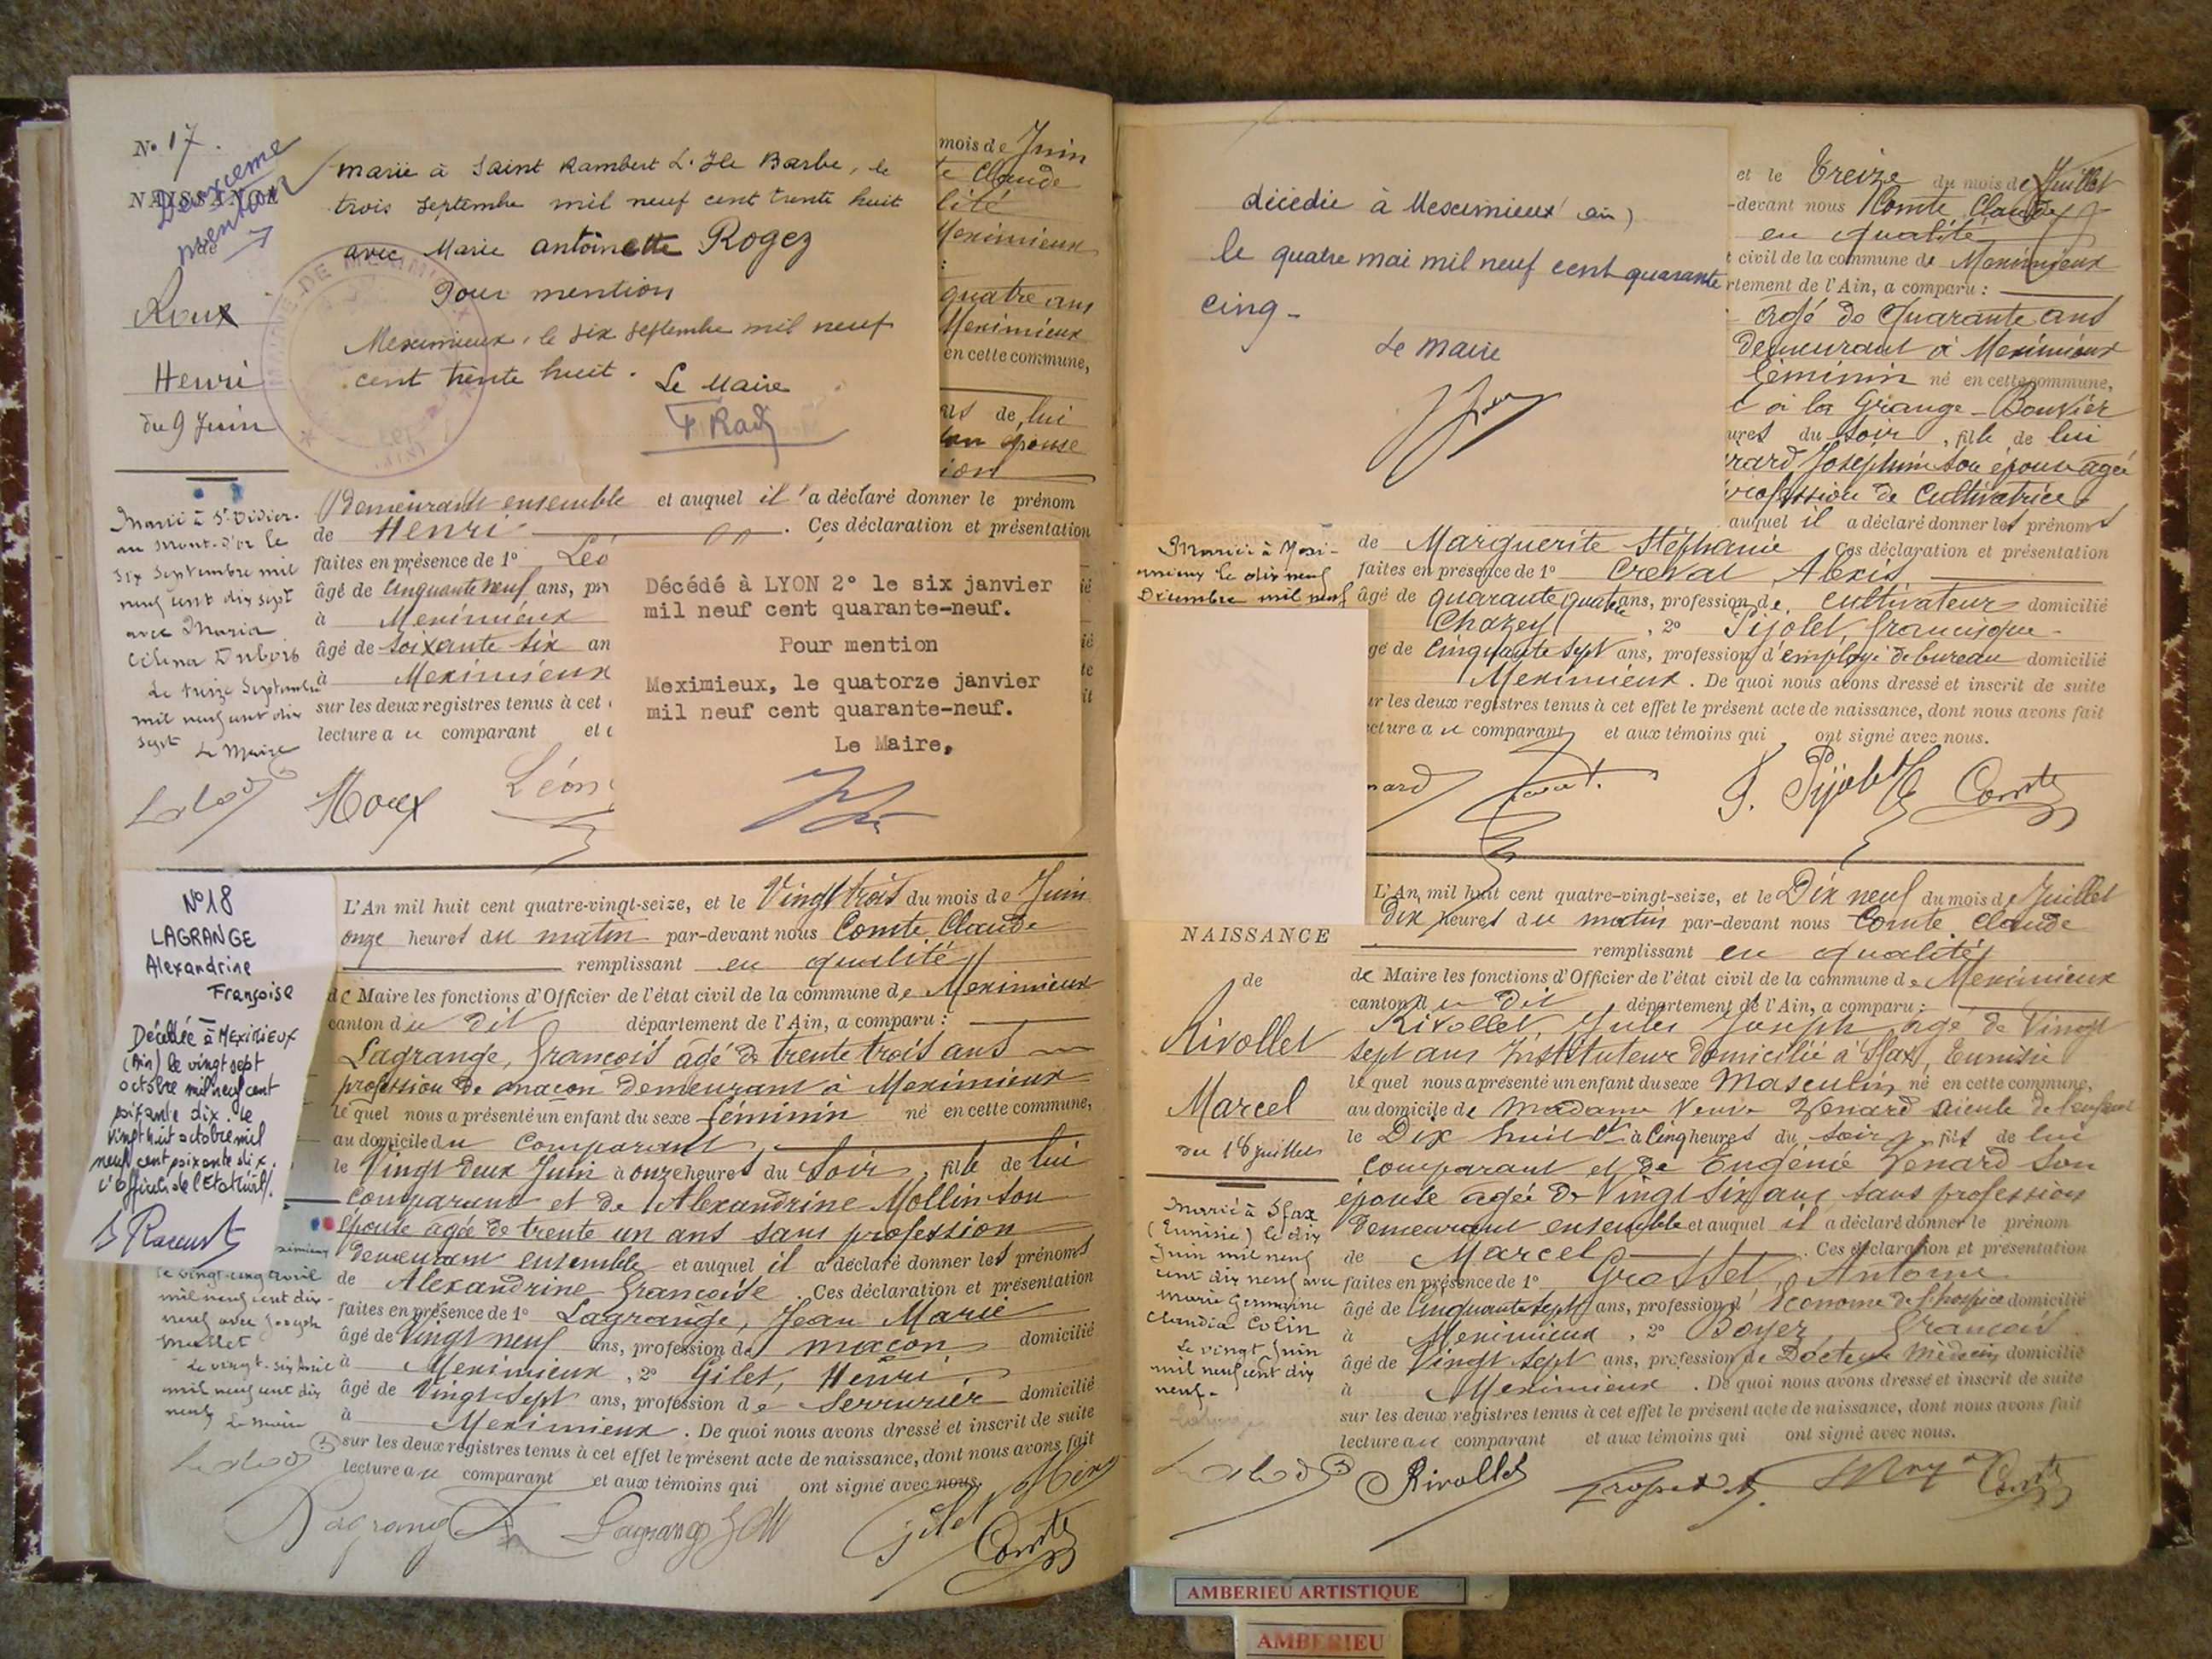 N° 17.
NAISSANCE
Deuxième
mention
de
Roux
Henri
du 9 Juin
marié à Saint Rambert L'Ile Barbe, le
trois septembre mil neuf cent trente huit
avec Marie antoinette Rogez
Pour mention
Meximieux, le six septembre mil neuf
cent trente huit.
Le Maire
mois de Juin
Claude
lité
Meximieux
quatre ans
Meximieux
en cette commune,
de lui
son épouse
ion
demeurant ensemble et auquel il a déclaré donner le prénom
de Henri. Ces déclaration et présentation
faites en présence de 1° Léo
âgé de Cinquante neuf ans, pr
à Meximieux
âgé de soixante six an
à Meximieux
sur les deux registres tenus à cet
lecture au comparant et
Roux Léon
Décédé à LYON 2° le six janvier
mil neuf cent quarante-neuf.
Pour mention
Meximieux, le quatorze janvier
mil neuf cent quarante-neuf.
Le Maire,
Marié à St Didier-
au Mont-d'or le
six Septembre mil
neuf cent dix sept
avec Maria
Célina Dubois
Le treize Septembre
mil neuf cent dix
sept Le Maire
N°18
LAGRANGE
Alexandrine
Françoise
Décédée à MEXIMIEUX
(Ain) le vingt sept
octobre mil neuf cent
soixante dix. le
vingt huit octobre mil
neuf cent soixante dix.
L'Officier de l'Etat Civil,
le vingt-cinq avril
mil neuf cent dix-
neuf avec Joseph
Mallet
Le vingt-six avril
mil neuf cent dix
neuf Le Maire
L'An mil huit cent quatre-vingt-seize, et le Vingt trois du mois de Juin
onze heures du matin par-devant nous Comte Claude
remplissant en qualité
de Maire les fonctions d'Officier de l'état civil de la commune de Meximieux
canton du dit département de l'Ain, a comparu :
Lagrange, François âgé de trente trois ans
profession de maçon demeurant à Meximieux
le quel nous a présenté un enfant du sexe féminin né en cette commune,
au domicile du comparant,
le Vingt deux Juin à onze heures du Soir, fille de lui
comparant et de Alexandrine Mollin son
épouse agée de trente un ans sans profession
demeurant ensemble et auquel il a déclaré donner les prénoms
de Alexandrine Françoise. Ces déclaration et présentation
faites en présence de 1° Lagrange, Jean Marie
âgé de Vingt neuf ans, profession de maçon domicilié
à Meximieux, 2° Gilet, Henri
âgé de Vingt sept ans, profession de Serrurier domicilié
à Meximieux. De quoi nous avons dressé et inscrit de suite
sur les deux registres tenus à cet effet le présent acte de naissance, dont nous avons fait
lecture au comparant et aux témoins qui ont signé avec nous.
Lagrange Lagrange Gilet Comte
décédée à Meximieux (ain)
le quatre mai mil neuf cent quarante
cinq-
Le maire
et le Treize du mois de Juillet
-devant nous Comte Claude
en qualité
t civil de la commune de Meximieux
rtement de l'Ain, a comparu :
agé de Quarante ans
demeurant à Meximieux
féminin né en cette commune,
à la Grange-Bouvier
ures du soir, fille de lui
rard Josephine son épouse agée
profession de Cultivatrice
auquel il a déclaré donner les prénoms
de Marguerite Stéphanie Ces déclaration et présentation
faites en présence de 1° Creval Alexis
âgé de quarante quatre ans, profession de cultivateur domicilié
Chazey, 2° Pijolet, Francisque
gé de Cinquante sept ans, profession d'employé de bureau domicilié
Meximieux. De quoi nous avons dressé et inscrit de suite
ur les deux registres tenus à cet effet le présent acte de naissance, dont nous avons fait
cture au comparant et aux témoins qui ont signé avec nous.
nard F. Pijolet Comte
Mariée à Mexi-
mieux le dix neuf
Décembre mil neuf
NAISSANCE
de
Rivollet
Marcel
du 18 juillet
Marié à Sfax
(Tunisie) le dix
Juin mil neuf
cent dix neuf avec
Marie Germaine
Claudia Colin
Le vingt Juin
mil neuf cent dix
neuf-
L'An mil huit cent quatre-vingt-seize, et le Dix neuf du mois de Juillet
dix heures du matin par-devant nous Comte Claude
remplissant en qualité
de Maire les fonctions d'Officier de l'état civil de la commune de Meximieux
canton du dit département de l'Ain, a comparu :
Rivollet, Jules Joseph agé de Vingt
sept ans Instituteur domicilié à Sfax, Tunisie
le quel nous a présenté un enfant du sexe Masculin né en cette commune,
au domicile de Madame Veuve Venard aïeule de l'enfant
le Dix huit à Cinq heures du soir, fils de lui
comparant et de Eugénie Venard son
épouse agée de Vingt six ans, sans profession
demeurant ensemble et auquel il a déclaré donner le prénom
de Marcel. Ces déclaration et présentation
faites en présence de 1° Grosset, Antoine
âgé de Cinquante sept ans, profession d'Econome de l'hospice domicilié
à Meximieux, 2° Boyer François
âgé de Vingt sept ans, profession de Docteur Médecin domicilié
à Meximieux. De quoi nous avons dressé et inscrit de suite
sur les deux registres tenus à cet effet le présent acte de naissance, dont nous avons fait
lecture au comparant et aux témoins qui ont signé avec nous.
Rivollet Grosset Comte
AMBERIEU ARTISTIQUE
AMBERIEU